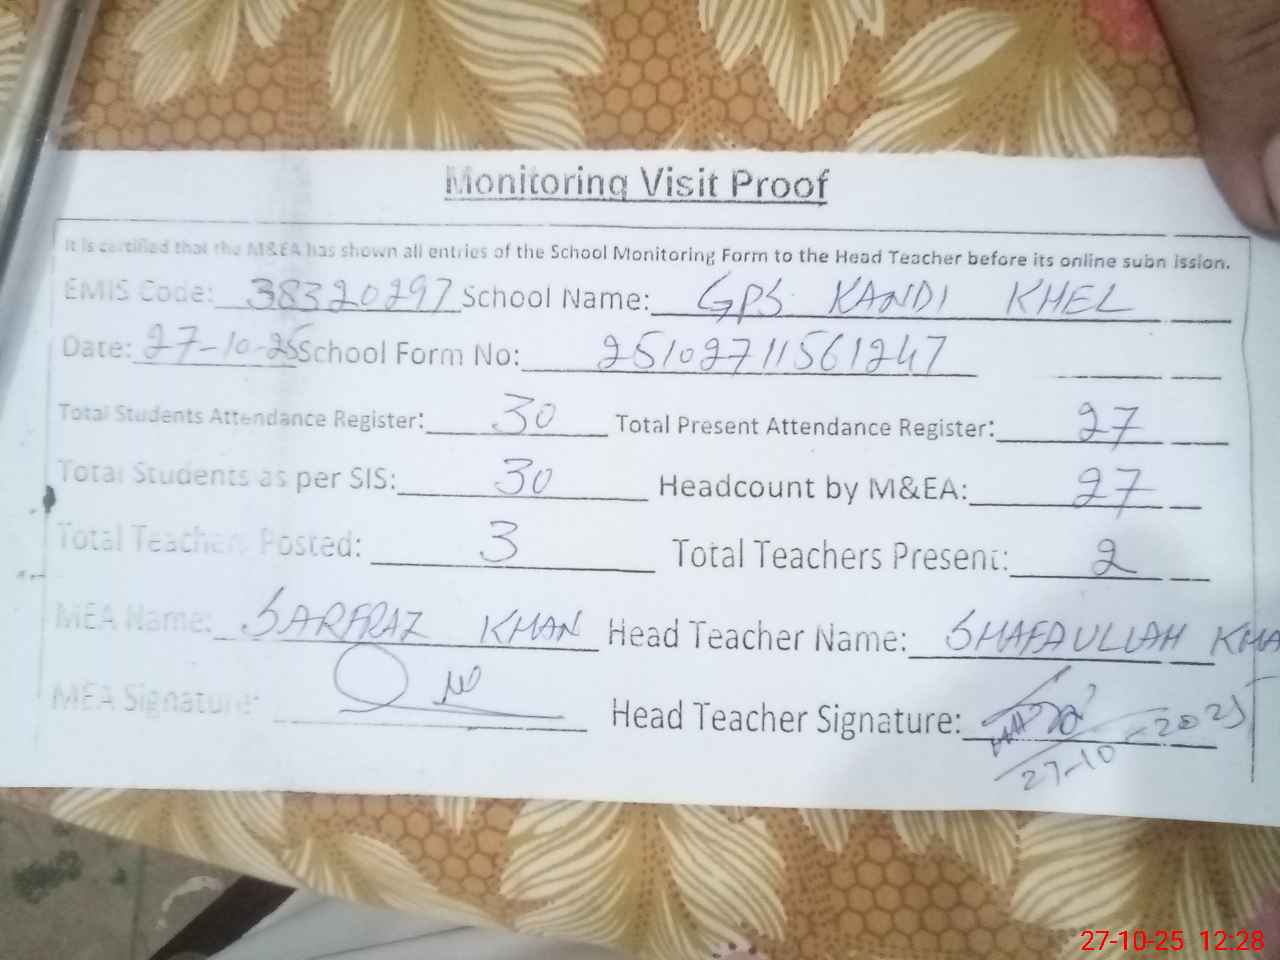 Monitoring Visit Proof
It is certified that the M&EA has shown all entries of the School Monitoring Form to the Head Teacher before its online subn ission.
EMIS Code: 38320297 School Name: GPS KANDI KHEL
Date: 27-10-25 School Form No: 25102711561247
Total Students Attendance Register: 30 Total Present Attendance Register: 27
Total Students as per SIS: 30 Headcount by M&EA: 27
Total Teachers Posted: 3 Total Teachers Present: 2
MEA Name: SARFRAZ KHAN Head Teacher Name: SHAFAULLAH KHA
MEA Signature: Head Teacher Signature:
27-10-2025
27-10-25 12:28